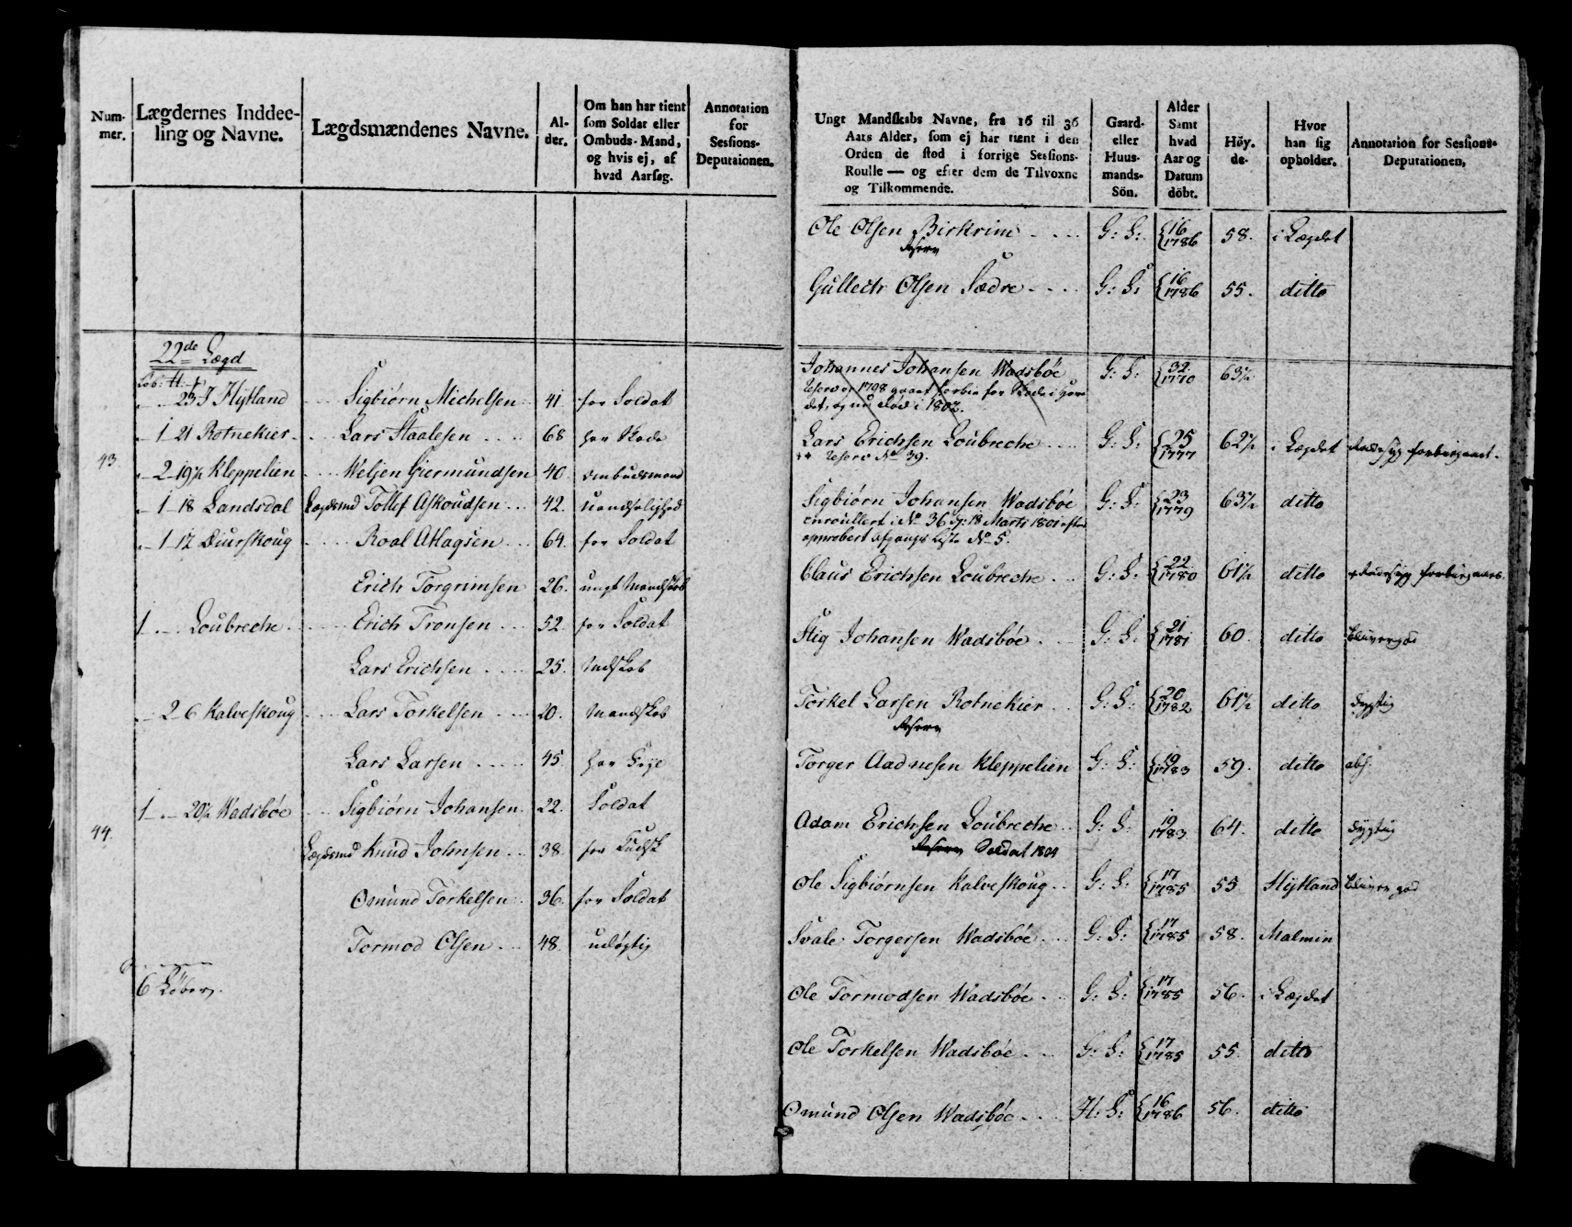 Num-
mer.
Lægdernes Inddee-
ling og Navne.
Lægdsmændenes Navne.
Al-
der.
Om han har tient
som Soldat eller
Ombuds-Mand,
og hvis ej, af
hvad Aarsag.
Annotation
for
Sessions-
Deputaionen.
22de Lægd
Löb: H:
23 Hÿtland Sigbiørn Michelsen 41 for Soldat
1 21 Rotnekier Lars Staalesen 68 har Skade
43
2 19½ Kleppelien Weljen Giermundsen 40 ombudsmand
1 18 Landsdal Lægdsmd Tollef Askoudsen 42
1 12 Duurskoug Roal Atlagsen 64 for Soldat
Erich Torgrimsen 26 ungt Mandskab
1 Loubreche Erich Tronsen 52 for Soldat
Lars Erichsen 25 Mdskab
2 6 Kalveskoug Lars Torkelsen 20 Mandskab
Lars Larsen 45
1 20½ Wadsbøe Sigbiørn Johansen 22 Soldat
44
Lægdsmd Knud Johnsen 38
Osmund Torkelsen 36 for Soldat
Tormod Olsen 48 udögtig
6 Löber
Ungt Mandskabs Navne, fra 16 til 36
Aars Alder, som ej har tient i den
Orden de stod i forrige Sessions-
Roulle — og efter dem de Tilvoxne
og Tilkommende.
Gaard-
eller
Huus-
mands-
Sön.
Alder
Samt
hvad
Aar og
Datum
döbt.
Höy-
de.
Hvor
han sig
opholder.
Annotation for Sessions-
Deputationen,
Ole Olsen Birkrim G: S: 16 1786 58. i Lægdet
Reserv
Gullech Olsen Sædre G: S: 16 1786 55. ditto
Johannes Johansen Wadsbøe G: S: 32 1770 63½
Reserv er 1798 gaaet forbie for Skade i
det, og nu død i 1802.
Lars Erichsen Loubreche G: S: 25 1777 62½ i Lægdet
Reserv No 39.
Sigbiørn Johansen Wadsbøe G: S: 23 1779 63½ ditto
enroullert i No 36 18 Marts 1801 efter
approbert afgangs Liste No 5.
Claus Erichsen Loubreche G: S: 22 1780 61½ ditto
Stig Johansen Wadsbøe G: S: 21 1781 60 ditto
Torkel Larsen Rotnekier G: S: 20 1782 61½ ditto dygtig
Reserv
Torger Aadnesen Kleppelien G: S: 19 1783 59. ditto abs.
Adam Erichsen Loubreche G: S: 19 1783 64. ditto dygtig
Reserv Soldat 1804
Ole Sigbiørnsen Kalveskoug G: S: 17 1785 55 Hÿtland
Svale Torgersen Wadsbøe G: S: 17 1785 58. Malmin
Ole Tormodsen Wadsbøe G: S: 17 1785 56. i Lægdet
Ole Torkelsen Wadsbøe G: S: 17 1785 55. ditto
Osmund Olsen Wadsbøe H: S: 16 1786 56. ditto